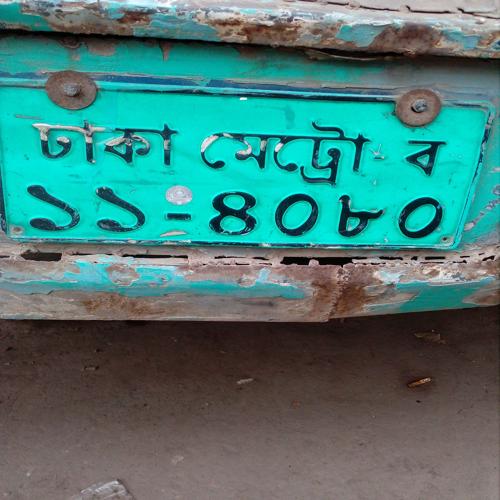 ঢাকা মেট্রো ব
১১-৪০৮০